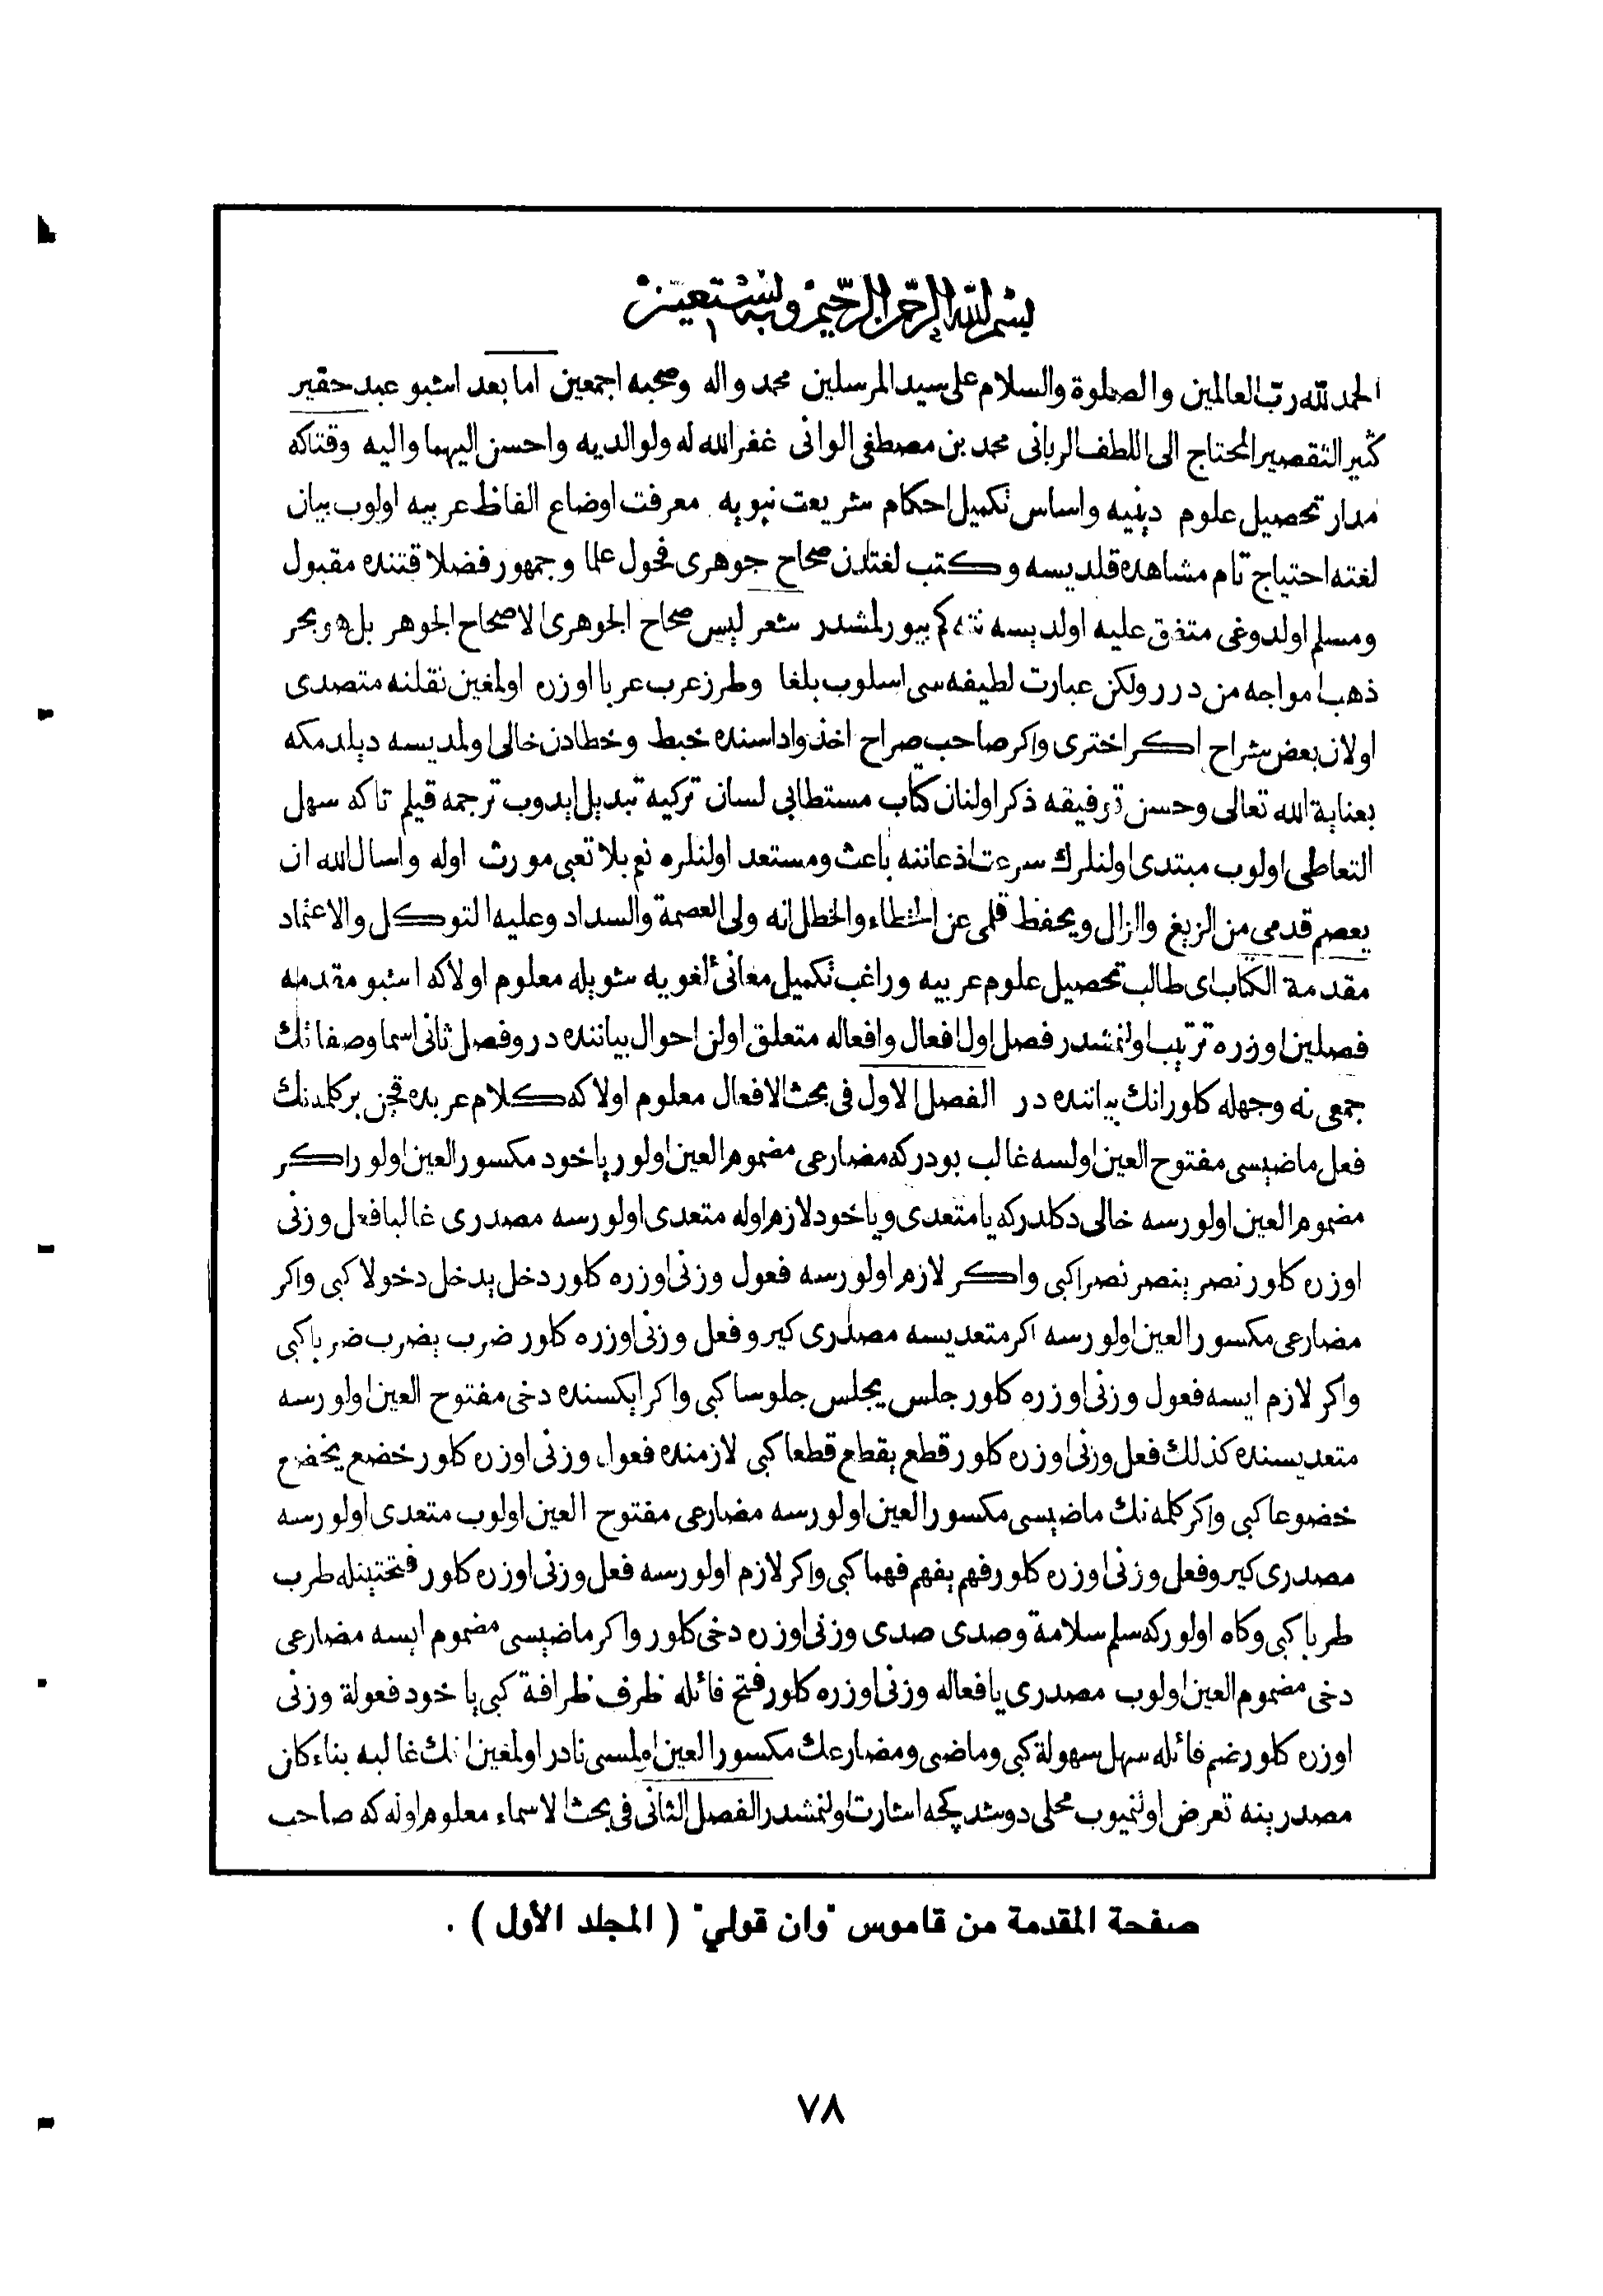 بسم الله الرحمن الرحيم وبه نستعين
الحمد لله رب العالمين والصلوة والسلام على سيد المرسلين محمد واله وصحبه اجمعين اما بعد اشبو عبد حقير
كثير التقصير المحتاج الى اللطف الربانى محمد بن مصطفى الوانى غفر الله له ولوالديه واحسن اليهما واليه وقتاكه
مدار تحصيل علوم دينيه واساس تكميل احكام شريعت نبويه معرفت اوضاع الفاظ عربيه اولوب بيان
لغته احتياج تام مشاهده قلديسه وكتب لغتدن صحاح جوهرى فحول علما وجمهور فضلا قتنده مقبول
ومسلم اولدوغى متفق عليه اولديسه نته كم بيورلمشدر شعر ليس صحاح الجوهرى الا صحاح الجوهر بل هو بحر
ذهب امواجه من درر ولكن عبارت لطيفه سى اسلوب بلغا وطرز عرب عربا اوزره اولمغين نقلنه متصدى
اولان بعض شراح اكر اخترى واكر صاحب صراح اخذ واداسنده خبط وخطادن خالى اولمديسه ديلدمكه
بعناية الله تعالى وحسن توفيقه ذكر اولنان كتاب مستطابى لسان تركيه تبديل ايدوب ترجمه قيلم تاكه سهل
التعاطى اولوب مبتدى اولنلرك سرعت اذعاننه باعث ومستعد اولنلره نعم بلا تعبى مورث اوله واسال الله ان
يعصم قدمى من الزيغ والزلل ويحفظ قلمى عن الخطاء والخطل انه ولى العصمة والسداد وعليه التوكل والاعتماد
مقدمة الكتاب اى طالب تحصيل علوم عربيه وراغب تكميل معانئ لغويه شويله معلوم اولاكه اشبو مقدمه
فصلين اوزره ترتيب اولنمشدر فصل اول افعال وافعاله متعلق اولن احوال بياننده در وفصل ثانى اسما وصفاتك
جمعى نه وجهله كلور انك بياننده در الفصل الاول فى بحث الافعال معلوم اولاكه كلام عربده قچن بر كلمه نك
فعل ماضيسى مفتوح العين اولسه غالب بودركه مضارعى مضموم العين اولور ياخود مكسور العين اولور اكر
مضموم العين اولورسه خالى دكلدركه يا متعدى ويا خود لازم اوله متعدى اولورسه مصدرى غالبا فعل وزنى
اوزره كلور نصر ينصر نصرا كبى واكر لازم اولورسه فعول وزنى اوزره كلور دخل يدخل دخولا كبى واكر
مضارعى مكسور العين اولورسه اكر متعديسه مصدرى كيرو فعل وزنى اوزره كلور ضرب يضرب ضربا كبى
واكر لازم ايسه فعول وزنى اوزره كلور جلس يجلس جلوسا كبى واكر ايكسنده دخى مفتوح العين اولورسه
متعديسنده كذلك فعل وزنى اوزره كلور قطع يقطع قطعا كبى لازمنده فعول وزنى اوزره كلور خضع يخضع
خضوعا كبى واكر كلمه نك ماضيسى مكسور العين اولورسه مضارعى مفتوح العين اولوب متعدى اولورسه
مصدرى كيرو فعل وزنى اوزره كلور فهم يفهم فهما كبى واكر لازم اولورسه فعل وزنى اوزره كلور فتحتينله طرب
طربا كبى وكاه اولور كه سلم سلامة وصدى صدى وزنى اوزره دخى كلور واكر ماضيسى مضموم ايسه مضارعى
دخى مضموم العين اولوب مصدرى يا فعاله وزنى اوزره كلور فتح فائله ظرف ظرافة كبى يا خود فعولة وزنى
اوزره كلور ضم فائله سهل سهولة كبى وماضى ومضارعك مكسور العين اولمسى نادر اولمغين انك غالبه بناء كان
مصدرينه تعرض اولنميوب محلى دوشدكچه اشارت اولنمشدر الفصل الثانى فى بحث الاسماء معلوم اوله كه صاحب
صفحة المقدمة من قاموس "وان قولي" ( المجلد الأول ) .
٧٨